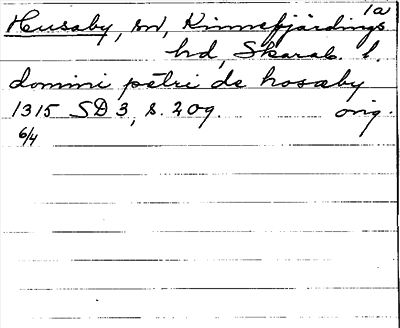 1a
Husaby, sn, Kinnefjärdings
hd, Skarab. l.
domini petri de hosæby
1315 SD 3, s. 209. orig.
6/4